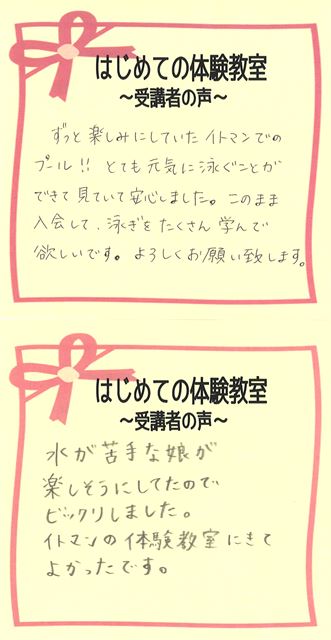 はじめての体験教室
～受講者の声～
ずっと楽しみにしていたイトマンでの
プール!! とても元気に泳ぐことが
できて見ていて安心しました。このまま
入会して、泳ぎをたくさん学んで
欲しいです。よろしくお願い致します。
はじめての体験教室
～受講者の声～
水が苦手な娘が
楽しそうにしてたので
ビックリしました。
イトマンの体験教室にきて
よかったです。